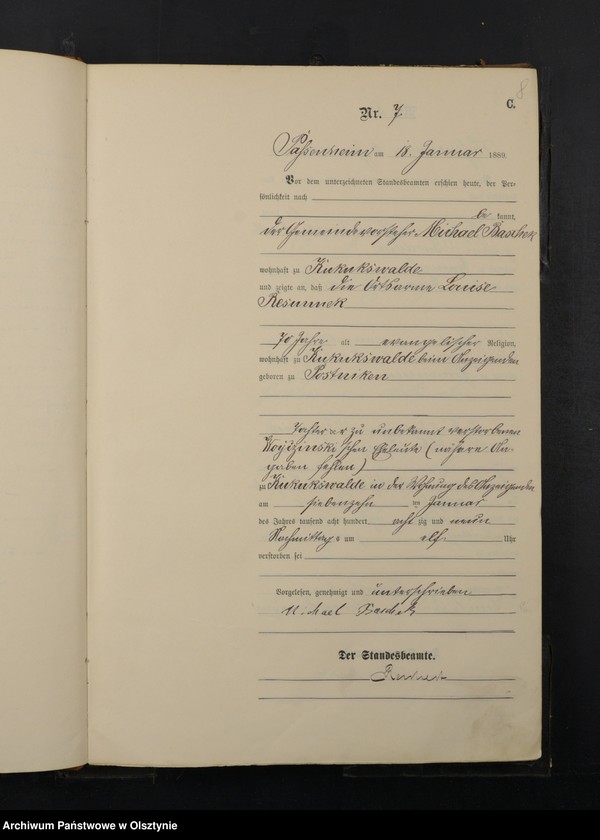 8
C.
Nr. 7
Passenheim am 18. Januar 1889.
Vor dem unterzeichneten Standesbeamten erschien heute, der Per-
sönlichkeit nach
be kannt,
der Gemeindevorsteher Michael
wohnhaft zu Kukukswalde
und zeigte an, daß die Ortsarme Louise
70 Jahre alt evangelischer Religion,
wohnhaft zu Kukukswalde beim Anzeigenden
geboren zu Postniken
Tochter der zu unbekannt verstorbenen
schen Eheleute (nähere An-
gaben fehlen)
zu Kukukswalde in der Wohnung des Anzeigenden
am siebenzehn ten Januar
des Jahres tausend acht hundert acht zig und neun
Nachmittags um elf Uhr
verstorben sei
Vorgelesen, genehmigt und unterschrieben
Der Standesbeamte.
Archiwum Państwowe w Olsztynie